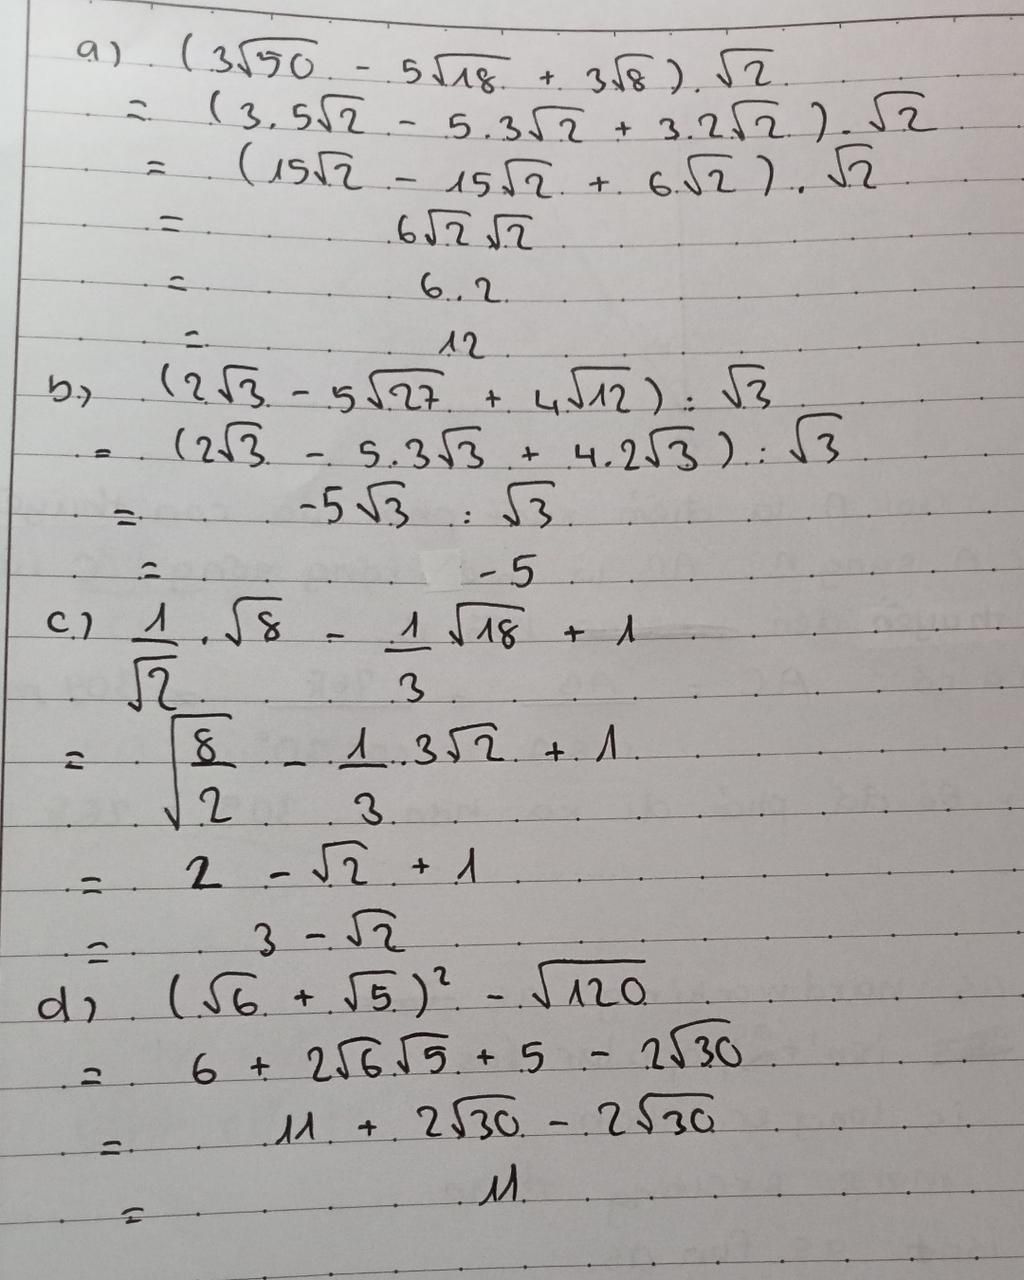 a) (3√50 - 5√18 + 3√8) . √2
= (3.5√2 - 5.3√2 + 3.2√2) . √2
= (15√2 - 15√2 + 6√2) . √2
= 6√2 √2
= 6.2
= 12
b) (2√3 - 5√27 + 4√12) : √3
= (2√3 - 5.3√3 + 4.2√3) : √3
= -5√3 : √3
= -5
c) 1/√2 . √8 - 1/3 √18 + 1
= √(8/2) - 1/3 . 3√2 + 1
= 2 - √2 + 1
= 3 - √2
d) (√6 + √5)² - √120
= 6 + 2√6√5 + 5 - 2√30
= 11 + 2√30 - 2√30
= 11